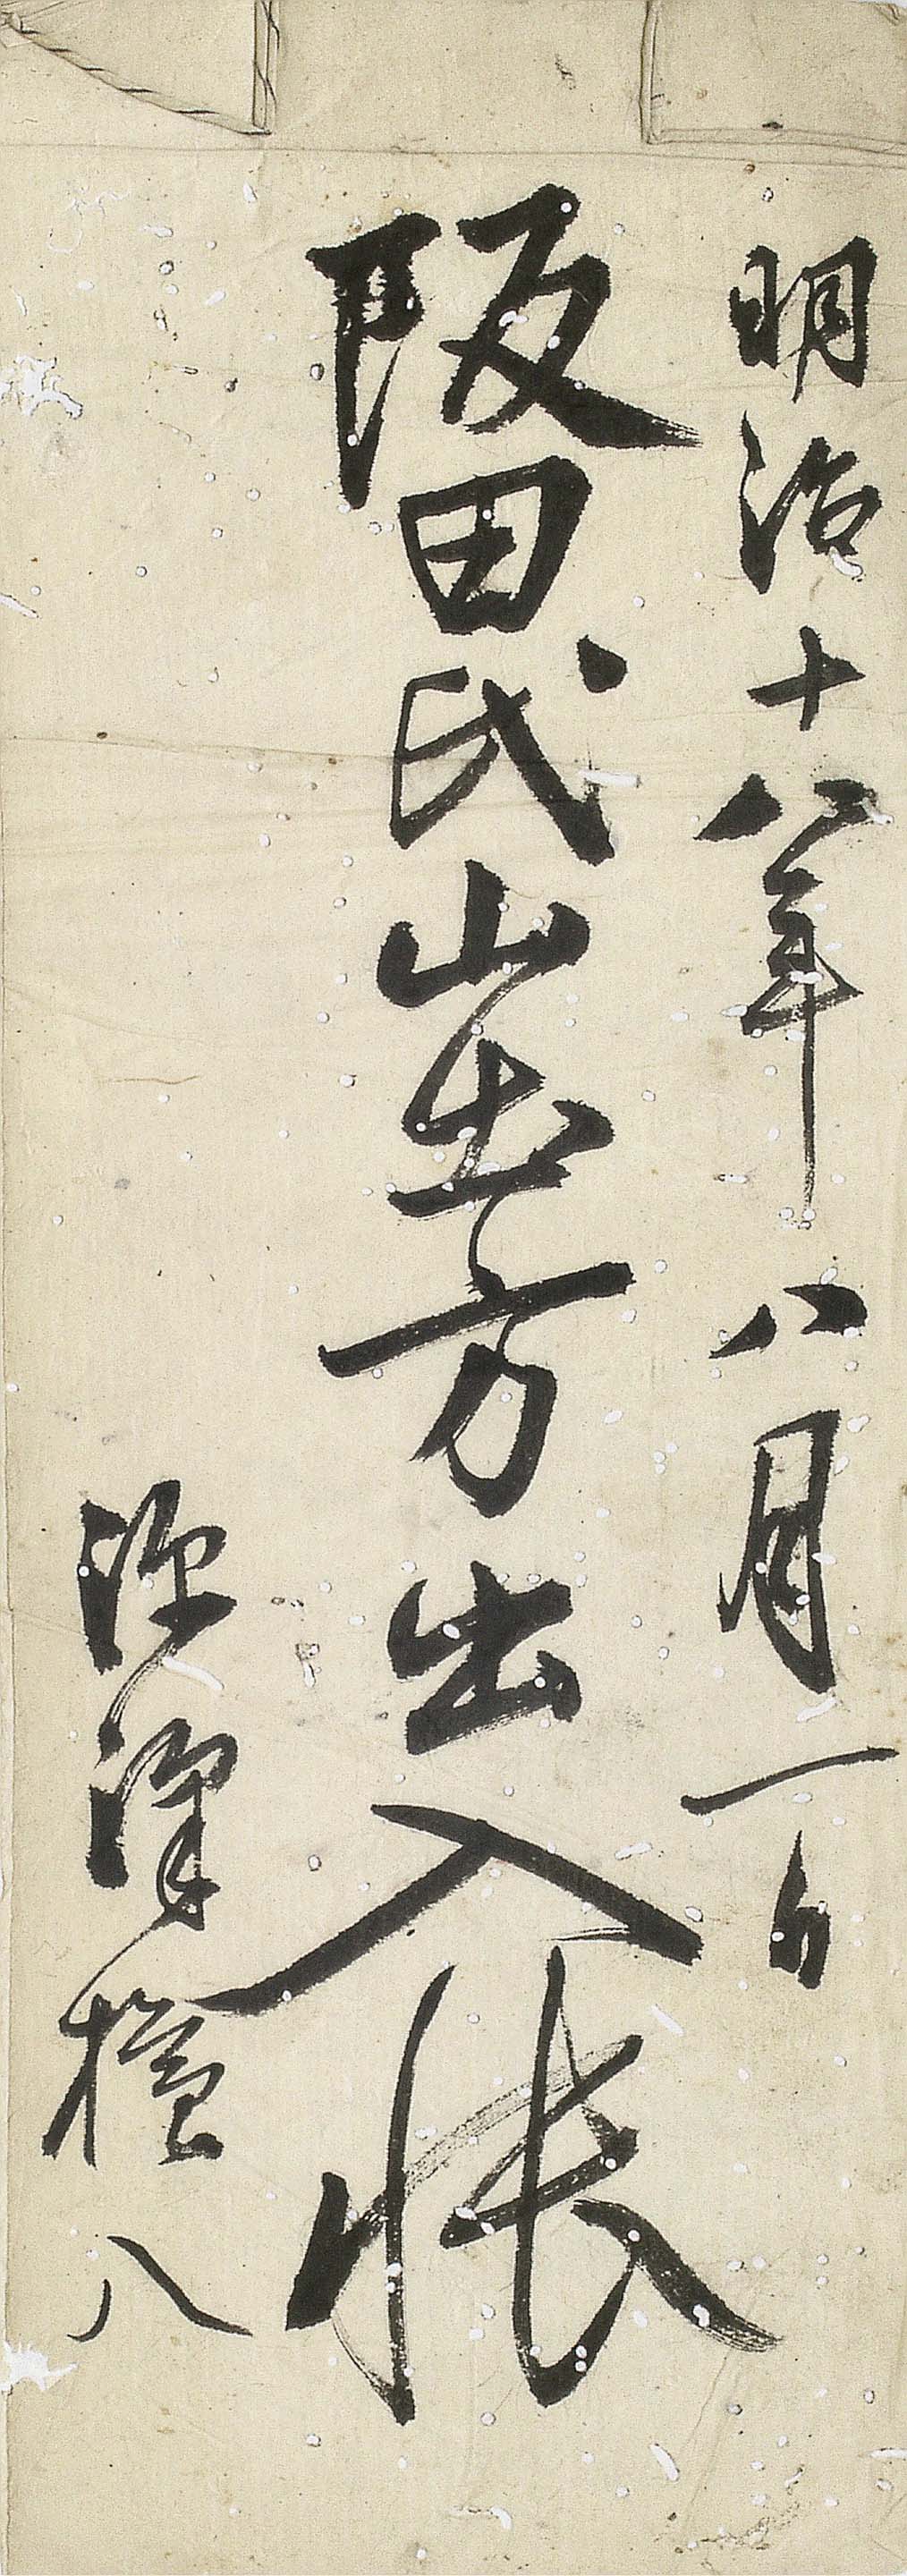 明治十八年八月一日
阪田氏山出方出入帳
深澤権八